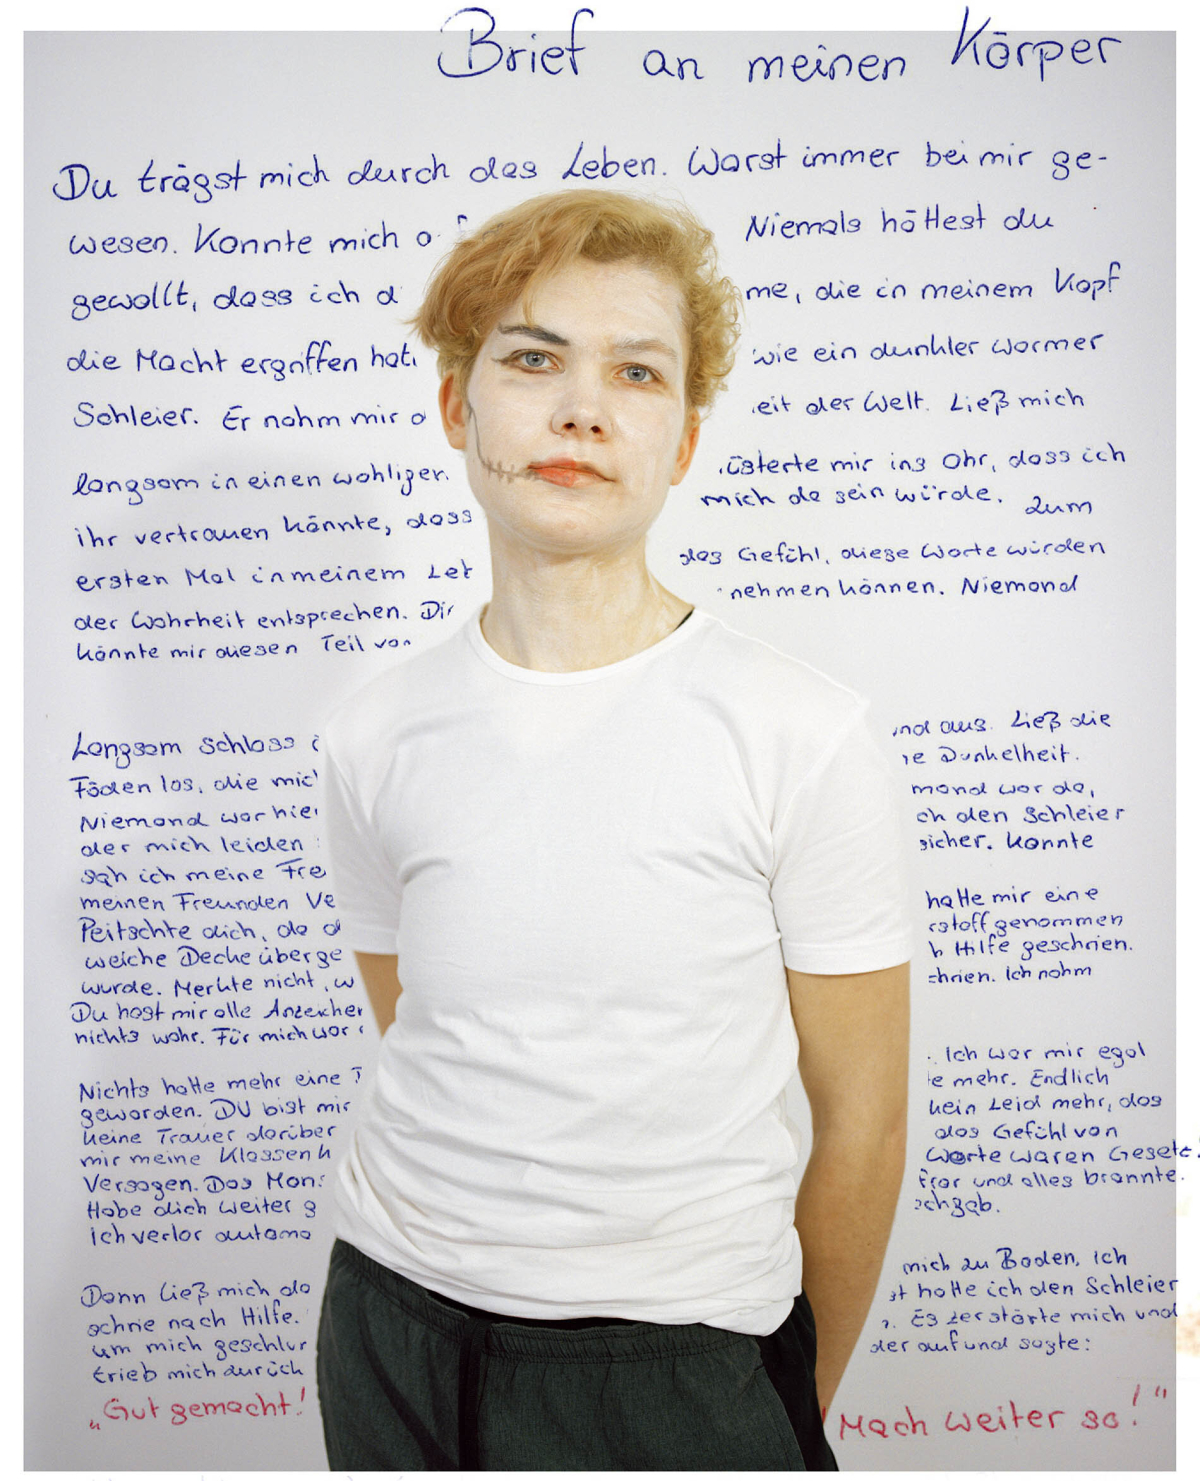 Brief an meinen Körper
Du trägst mich durch das Leben. Warst immer bei mir ge-
wesen. Konnte mich Niemals hättest du
gewollt, dass ich d me, die in meinem Kopf
die Macht ergriffen hat wie ein dunkler warmer
Schleier. Er nahm mir eit der Welt. Ließ mich
langsam in einen wohligen üsterte mir ins Ohr, dass ich
ihr vertrauen könnte, dass mich da sein würde. Zum
ersten Mal in meinem Leb das Gefühl, diese Worte würden
der Wahrheit entsprechen. Dir nehmen können. Niemand
könnte mir diesen Teil von
Langsam schloss i und aus. Ließ die
Fäden los, die mich re Dunkelheit.
Niemand war hier mand war da,
der mich leiden ch den Schleier
sah ich meine Fre sicher. Konnte
meinen Freunden Ve hatte mir eine
Peitschte dich, da d rstoff genommen
weiche Decke überge b Hilfe geschrien.
wurde. Merkte nicht, w chrien. Ich nahm
Du hast mir alle Anzeichen
nichts wahr. Für mich war
Nichts hatte mehr eine Ich war mir egal
geworden. DU bist mir e mehr. Endlich
keine Trauer darüber kein Leid mehr, das
mir meine Klassenk das Gefühl von
Versagen. Das Mons Worte waren Gesetz
Habe dich weiter g fror und alles brannte.
ich verlor automa achgab.
Dann ließ mich da mich zu Boden, ich
schrie nach Hilfe. st hatte ich den Schleier
um mich geschlun Es zerstörte mich und
trieb mich zurück der auf und sagte:
„Gut gemacht! Mach weiter so!"